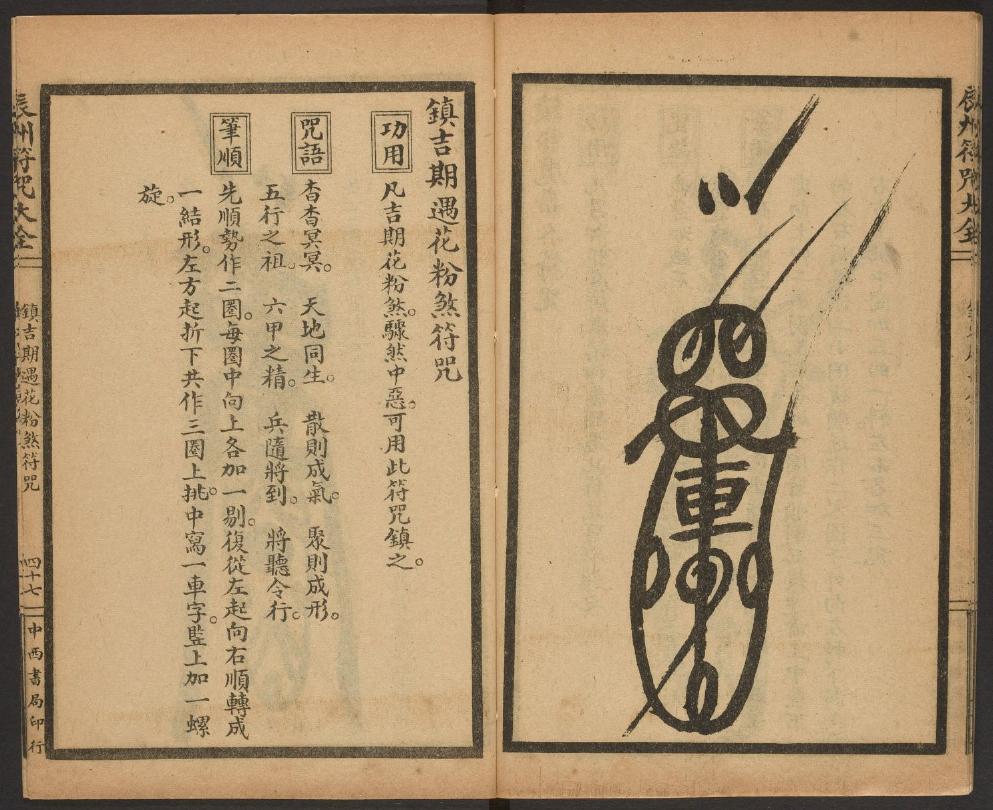 鎮吉期遇花粉煞符咒
功用
凡吉期花粉煞。驟然中惡。可用此符咒鎮之。
咒語
杳杳冥冥。 天地同生。 散則成氣。 聚則成形。
五行之祖。 六甲之精。 兵隨將到。 將聽令行。
筆順
先順勢作二圈。每圈中向上各加一剔。復從左起向右順轉成
一結形。左方起折下共作三圈上挑。中寫一車字。監上加一螺
旋。
辰州符咒大全
鎮吉期遇花粉煞符咒
四十七
中西書局印行
車
辰州符咒大全